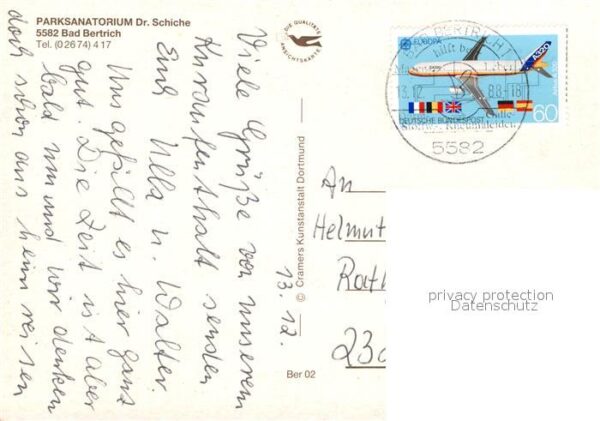 PARKSANATORIUM Dr. Schiche
5582 Bad Bertrich
Tel. (02674) 417
DIE QUALITÄTS
ANSICHTSKARTE
Viele Grüße von unserem
Kuraufenthalt senden
Euch Ulla u. Walter.
Uns gefällt es hier ganz
gut. Die Zeit ist aber
bald um und wir denken
doch schon ans heim reisen
13.12.
© Cramers Kunstanstalt Dortmund
Ber 02
BERTRICH
hilft bei
13.12.88-18
5582
EUROPA
A320
DEUTSCHE BUNDESPOST
60
An
Helmut
Rath
23
privacy protection
Datenschutz